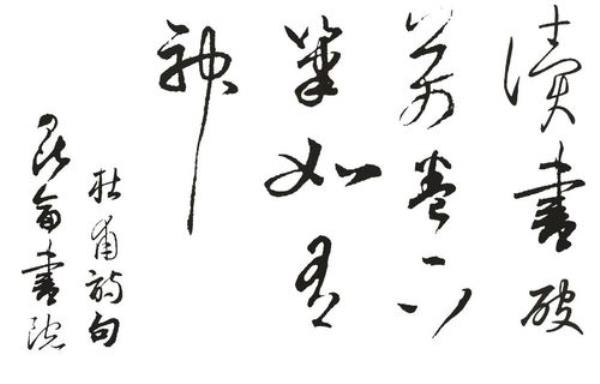 讀書破
萬卷下
筆如有
神
杜甫詩句
昆侖書院